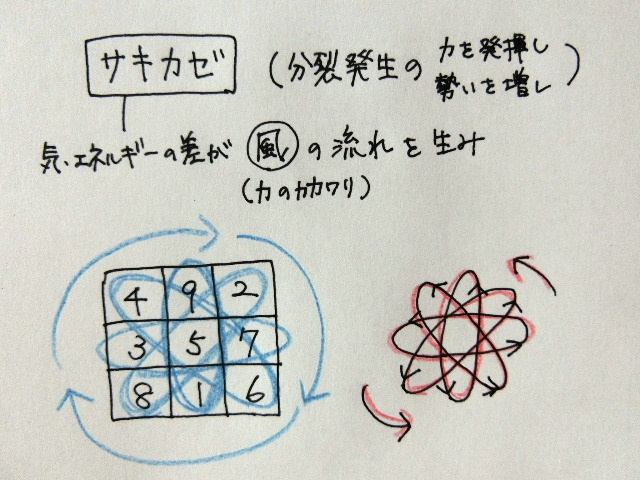 サキカゼ (分裂発生の 力を発揮し
勢いを増し)
気・エネルギーの差が 風 の流れを生み
(力のカカワリ)
4 9 2
3 5 7
8 1 6